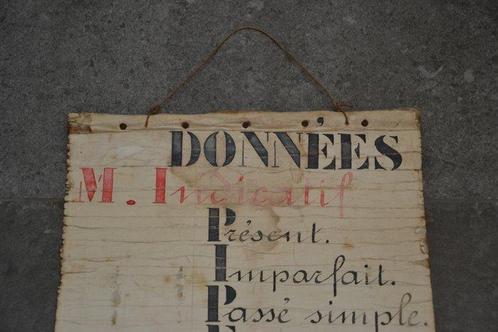 DONNÉES
M. Indicatif
Présent.
Imparfait.
Passé simple.